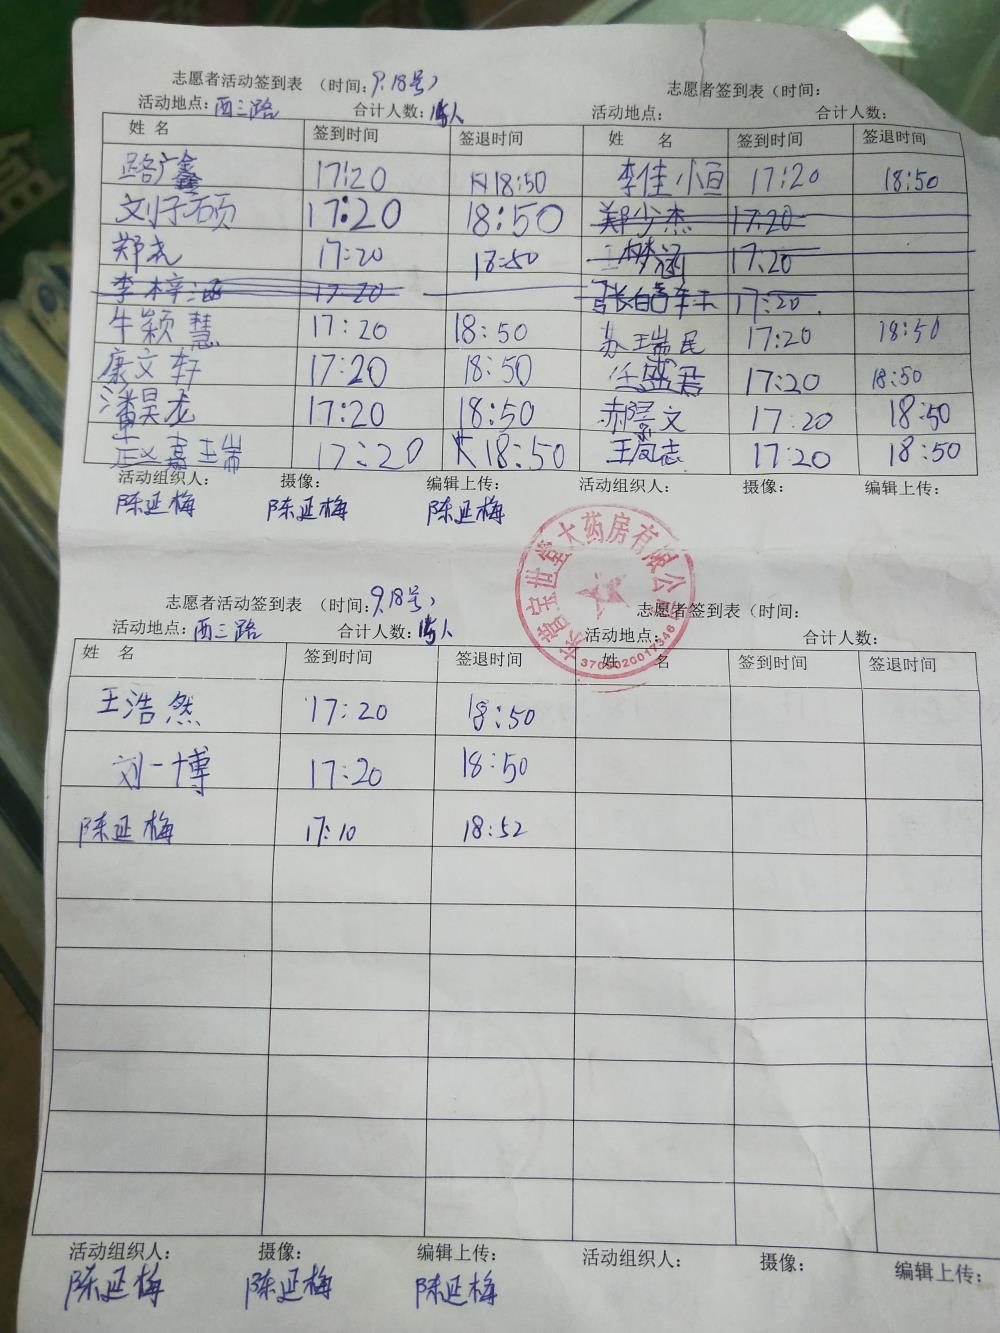 志愿者活动签到表 （时间：9.18号） 志愿者签到表（时间：
活动地点：西三路 合计人数： 人 活动地点： 合计人数：
姓 名 签到时间 签退时间 姓 名 签到时间 签退时间
路广鑫 17:20 18:50 李佳恒 17:20 18:50
刘子硕 17:20 18:50 郑少杰 17:20
郑尧 17:20 18:50 王梦涵 17:20
李梓涵 17:20 17:20
牛颖慧 17:20 18:50 苏瑞民 17:20 18:50
康文轩 17:20 18:50 任盛君 17:20 18:50
潘昊龙 17:20 18:50 郝景文 17:20 18:50
嘉瑞 17:20 18:50 王凤志 17:20 18:50
活动组织人： 摄像： 编辑上传： 活动组织人： 摄像： 编辑上传：
陈延梅 陈延梅 陈延梅
东营宝世堂大药房有限公司
3705020017346
志愿者活动签到表 （时间：9.18号） 志愿者签到表（时间：
活动地点：西三路 合计人数： 人 活动地点： 合计人数：
姓 名 签到时间 签退时间 姓 名 签到时间 签退时间
王浩然 17:20 18:50
刘一博 17:20 18:50
陈延梅 17:10 18:52
活动组织人： 摄像： 编辑上传： 活动组织人： 摄像： 编辑上传：
陈延梅 陈延梅 陈延梅